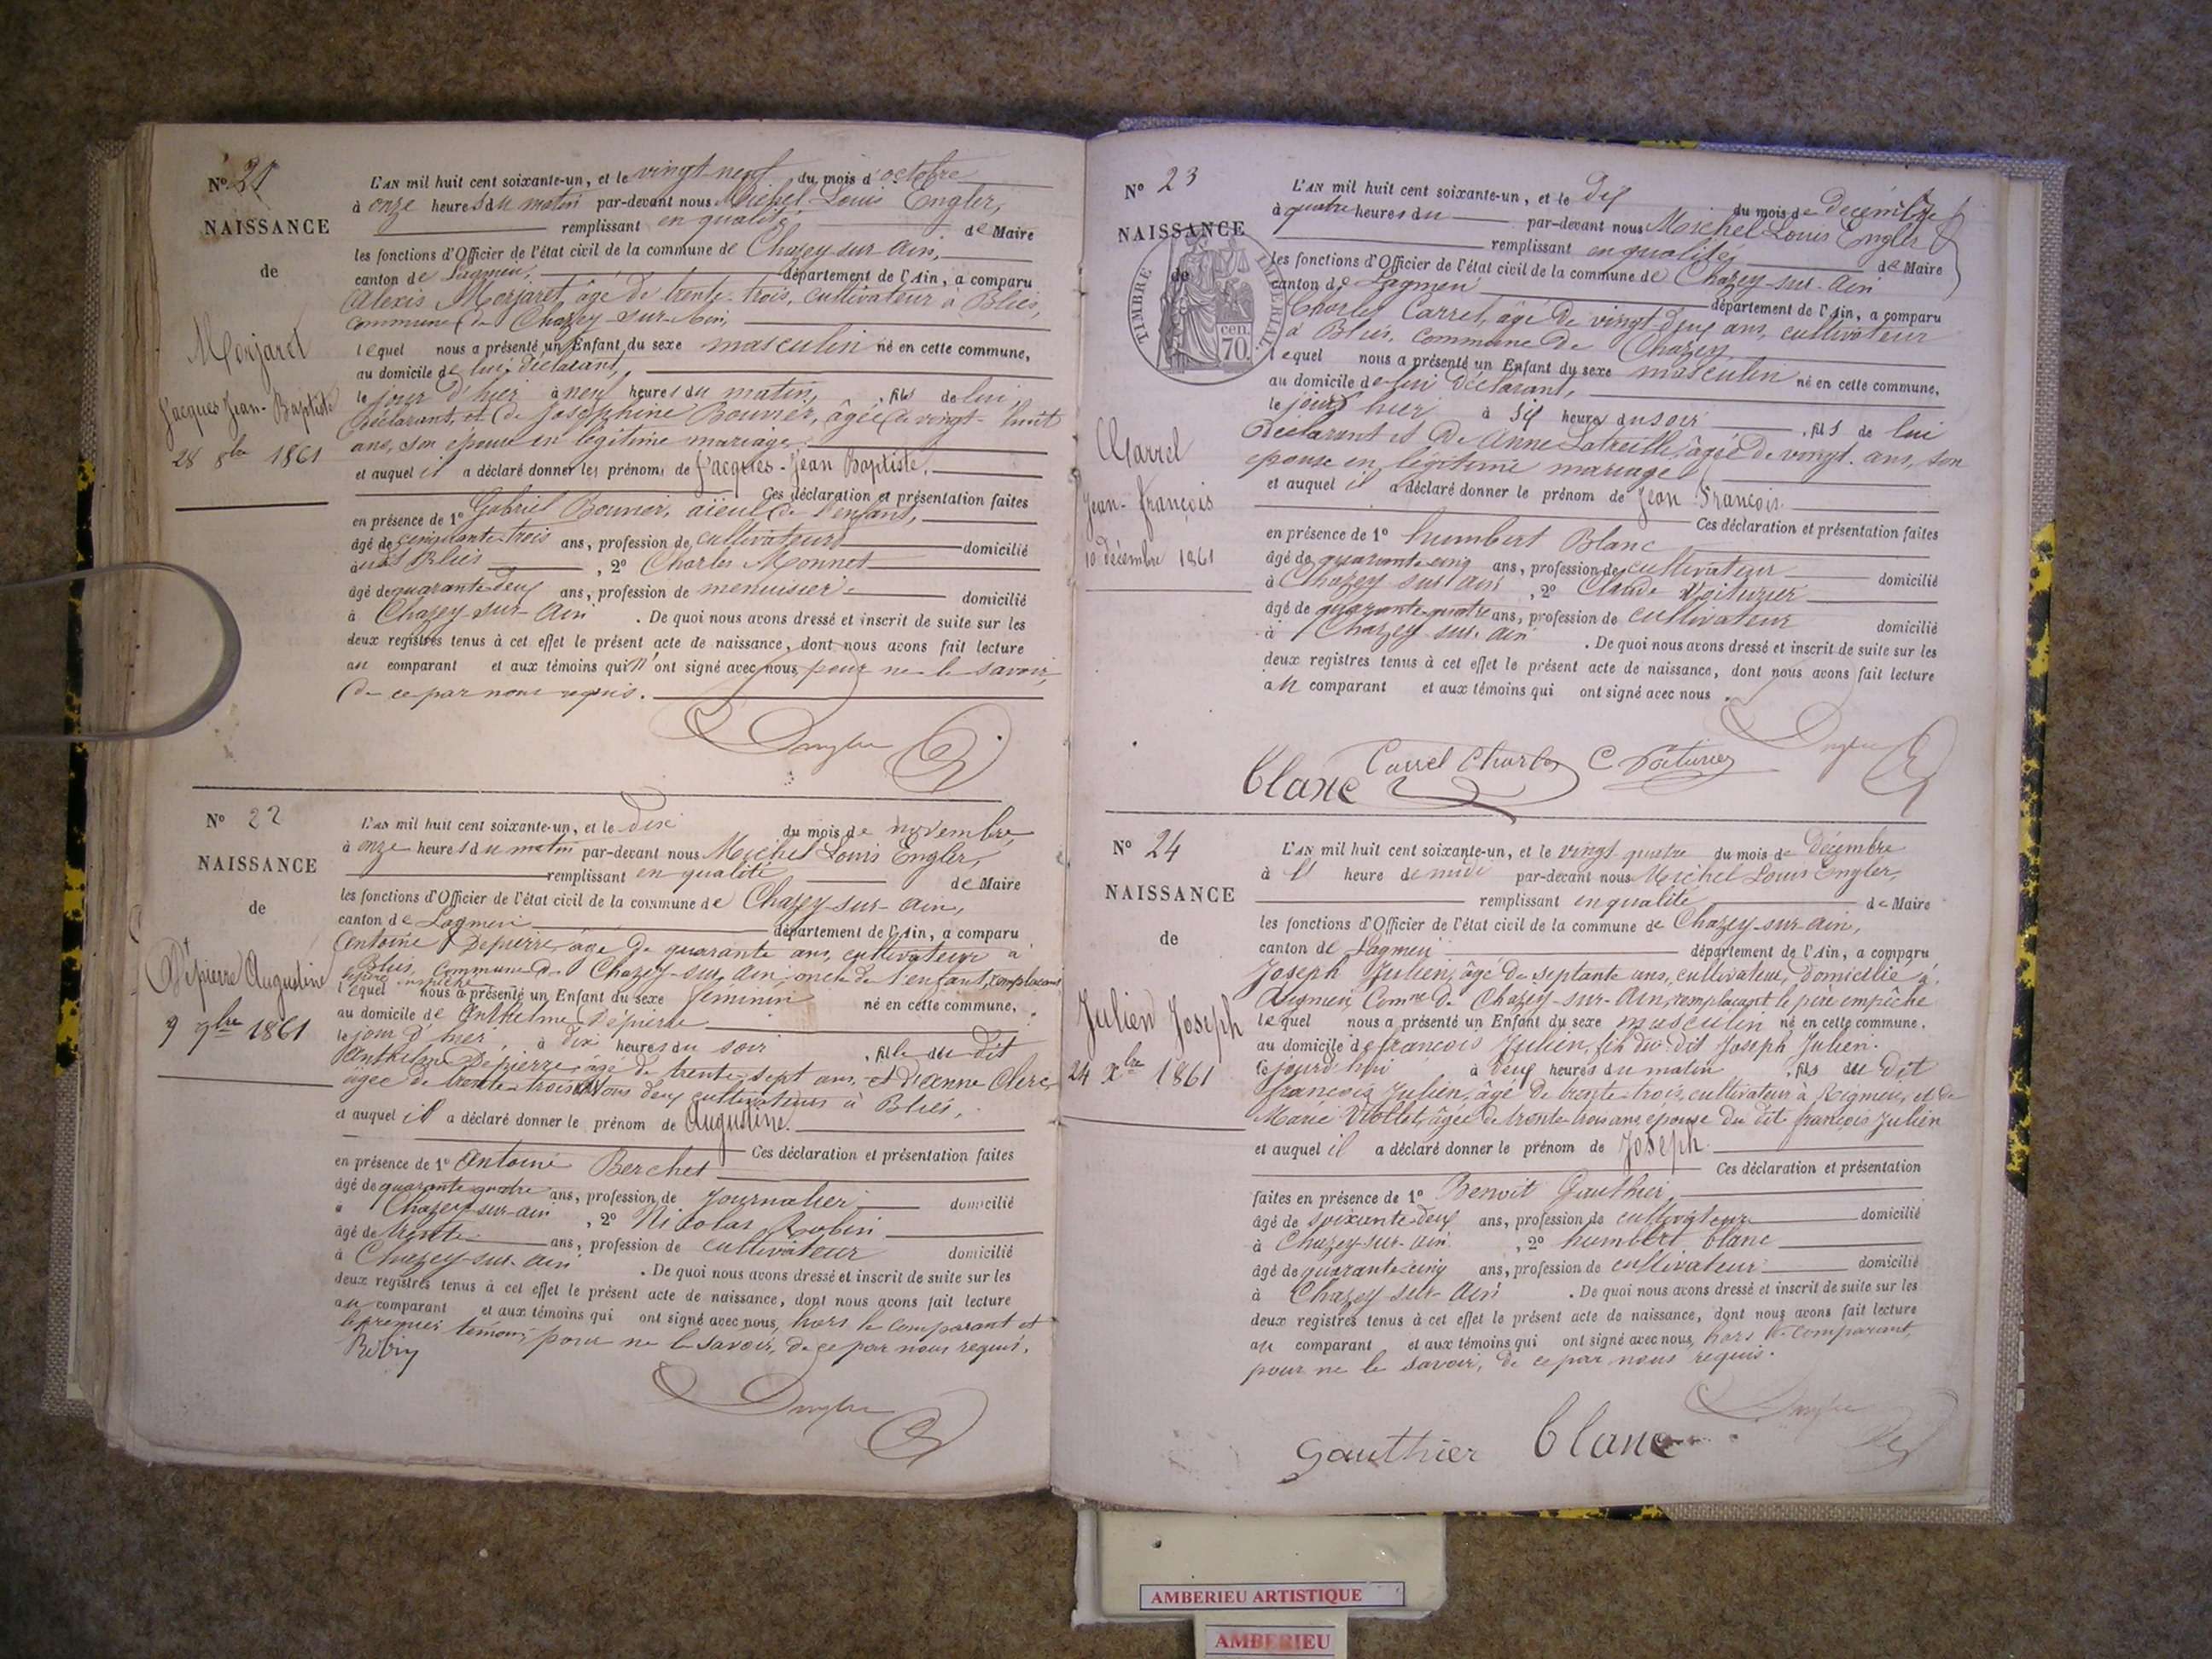 N° 21
NAISSANCE
de
Monjaret
Jacques Jean-Baptiste
28 8bre 1861
L'AN mil huit cent soixante-un, et le vingt-neuf du mois d'octobre
à onze heures du matin par-devant nous Michel Louis Engler,
remplissant en qualité de Maire
les fonctions d'Officier de l'état civil de la commune de Chazey-sur-Ain,
canton de Lagnieu, département de l'Ain, a comparu
Alexis Monjaret, âgé de trente-trois, cultivateur à Bliès,
commune de Chazey-sur-Ain,
lequel nous a présenté un Enfant du sexe masculin né en cette commune,
au domicile de lui déclarant,
le jour d'hier à neuf heures du matin, fils de lui
déclarant, et de Joséphine Bouvier, âgée de vingt-huit
ans, son épouse en légitime mariage,
et auquel il a déclaré donner les prénoms de Jacques-Jean Baptiste.
Ces déclaration et présentation faites
en présence de 1° Gabriel Bouvier, aïeul de l'enfant,
âgé de cinquante-trois ans, profession de cultivateur domicilié
à Bliès, 2° Charles Monnet
âgé de quarante-deux ans, profession de menuisier domicilié
à Chazey-sur-Ain. De quoi nous avons dressé et inscrit de suite sur les
deux registres tenus à cet effet le présent acte de naissance, dont nous avons fait lecture
au comparant et aux témoins qui n'ont signé avec nous pour ne le savoir,
de ce par nous requis.
N° 22
NAISSANCE
de
Dépierre Augustine
9 9bre 1861
L'AN mil huit cent soixante-un, et le dix du mois de novembre,
à onze heures du matin par-devant nous Michel Louis Engler,
remplissant en qualité de Maire
les fonctions d'Officier de l'état civil de la commune de Chazey-sur-Ain,
canton de Lagnieu département de l'Ain, a comparu
Antoine Dépierre, âgé de quarante ans, cultivateur à
Bliès, commune de Chazey-sur-Ain, oncle de l'enfant, remplaçant
le père empêché
lequel nous a présenté un Enfant du sexe féminin né en cette commune,
au domicile de Anthelme Dépierre
le jour d'hier, à dix heures du soir, fille du dit
Anthelme Dépierre, âgé de trente-sept ans, et d'Anne Clerc,
âgée de trente-trois ans, tous deux cultivateurs à Bliès,
et auquel il a déclaré donner le prénom de Augustine.
Ces déclaration et présentation faites
en présence de 1° Antoine Berchet
âgé de quarante-quatre ans, profession de journalier domicilié
à Chazey-sur-Ain, 2° Nicolas Robin
âgé de trente ans, profession de cultivateur domicilié
à Chazey-sur-Ain. De quoi nous avons dressé et inscrit de suite sur les
deux registres tenus à cet effet le présent acte de naissance, dont nous avons fait lecture
au comparant et aux témoins qui ont signé avec nous, hors le comparant et
le premier témoin, pour ne le savoir, de ce par nous requis.
Robin
N° 23
NAISSANCE
de
TIMBRE IMPÉRIAL
70 cen.
Carrel
Jean-François
10 décembre 1861
L'AN mil huit cent soixante-un, et le dix du mois de décembre
à quatre heures du par-devant nous Michel Louis Engler
remplissant en qualité de Maire
les fonctions d'Officier de l'état civil de la commune de Chazey-sur-Ain
canton de Lagnieu département de l'Ain, a comparu
Charles Carrel, âgé de vingt-deux ans, cultivateur
à Bliès, commune de Chazey,
lequel nous a présenté un Enfant du sexe masculin né en cette commune,
au domicile de lui déclarant,
le jour d'hier à six heures du soir, fils de lui
déclarant et de Anne Latreille, âgée de vingt ans, son
épouse en légitime mariage
et auquel il a déclaré donner le prénom de Jean François.
Ces déclaration et présentation faites
en présence de 1° humbert Blanc
âgé de quarante-cinq ans, profession de cultivateur domicilié
à Chazey sur Ain, 2° Claude Voiturier
âgé de quarante-quatre ans, profession de cultivateur domicilié
à Chazey-sur-Ain. De quoi nous avons dressé et inscrit de suite sur les
deux registres tenus à cet effet le présent acte de naissance, dont nous avons fait lecture
au comparant et aux témoins qui ont signé avec nous.
blanc Carrel Charles C Voiturier
N° 24
NAISSANCE
de
Julien Joseph
24 xbre 1861
L'AN mil huit cent soixante-un, et le vingt quatre du mois de décembre
à heure de midi par-devant nous Michel Louis Engler,
remplissant en qualité de Maire
les fonctions d'Officier de l'état civil de la commune de Chazey-sur-Ain,
canton de Lagnieu département de l'Ain, a comparu
Joseph Julien, âgé de septante ans, cultivateur, domicilié à
Rigneu, Comne de Chazey-sur-Ain, remplaçant le père empêché
lequel nous a présenté un Enfant du sexe masculin né en cette commune,
au domicile de françois Julien, fils du dit Joseph Julien.
le jourd'hui à deux heures du matin, fils du dit
françois Julien, âgé de trente-trois, cultivateur à Rigneu, et de
Marie Viollet, âgée de trente-trois ans épouse du dit françois Julien
et auquel il a déclaré donner le prénom de Joseph.
Ces déclaration et présentation
faites en présence de 1° Benoit Gauthier,
âgé de soixante-deux ans, profession de cultivateur domicilié
à Chazey-sur-Ain, 2° humbert blanc
âgé de quarante-cinq ans, profession de cultivateur domicilié
à Chazey sur-Ain. De quoi nous avons dressé et inscrit de suite sur les
deux registres tenus à cet effet le présent acte de naissance, dont nous avons fait lecture
au comparant et aux témoins qui ont signé avec nous, hors le comparant,
pour ne le savoir, de ce par nous requis.
Gauthier blanc
AMBERIEU ARTISTIQUE
AMBERIEU